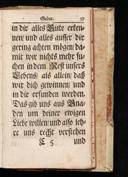 Gebet. 57
in dir alles Gute erken-
nen/ und alles ausser dir
gering achten mögen/ da-
mit wir nichts mehr su-
chen in dem Rest unsers
Lebens/ als allein daß
wir dich gewinnen/ und
in dir erfunden werden.
Das gib uns aus Gna-
den um deiner ewigen
Liebe willen/ und laß sol-
ches uns recht verstehen
E 5 und